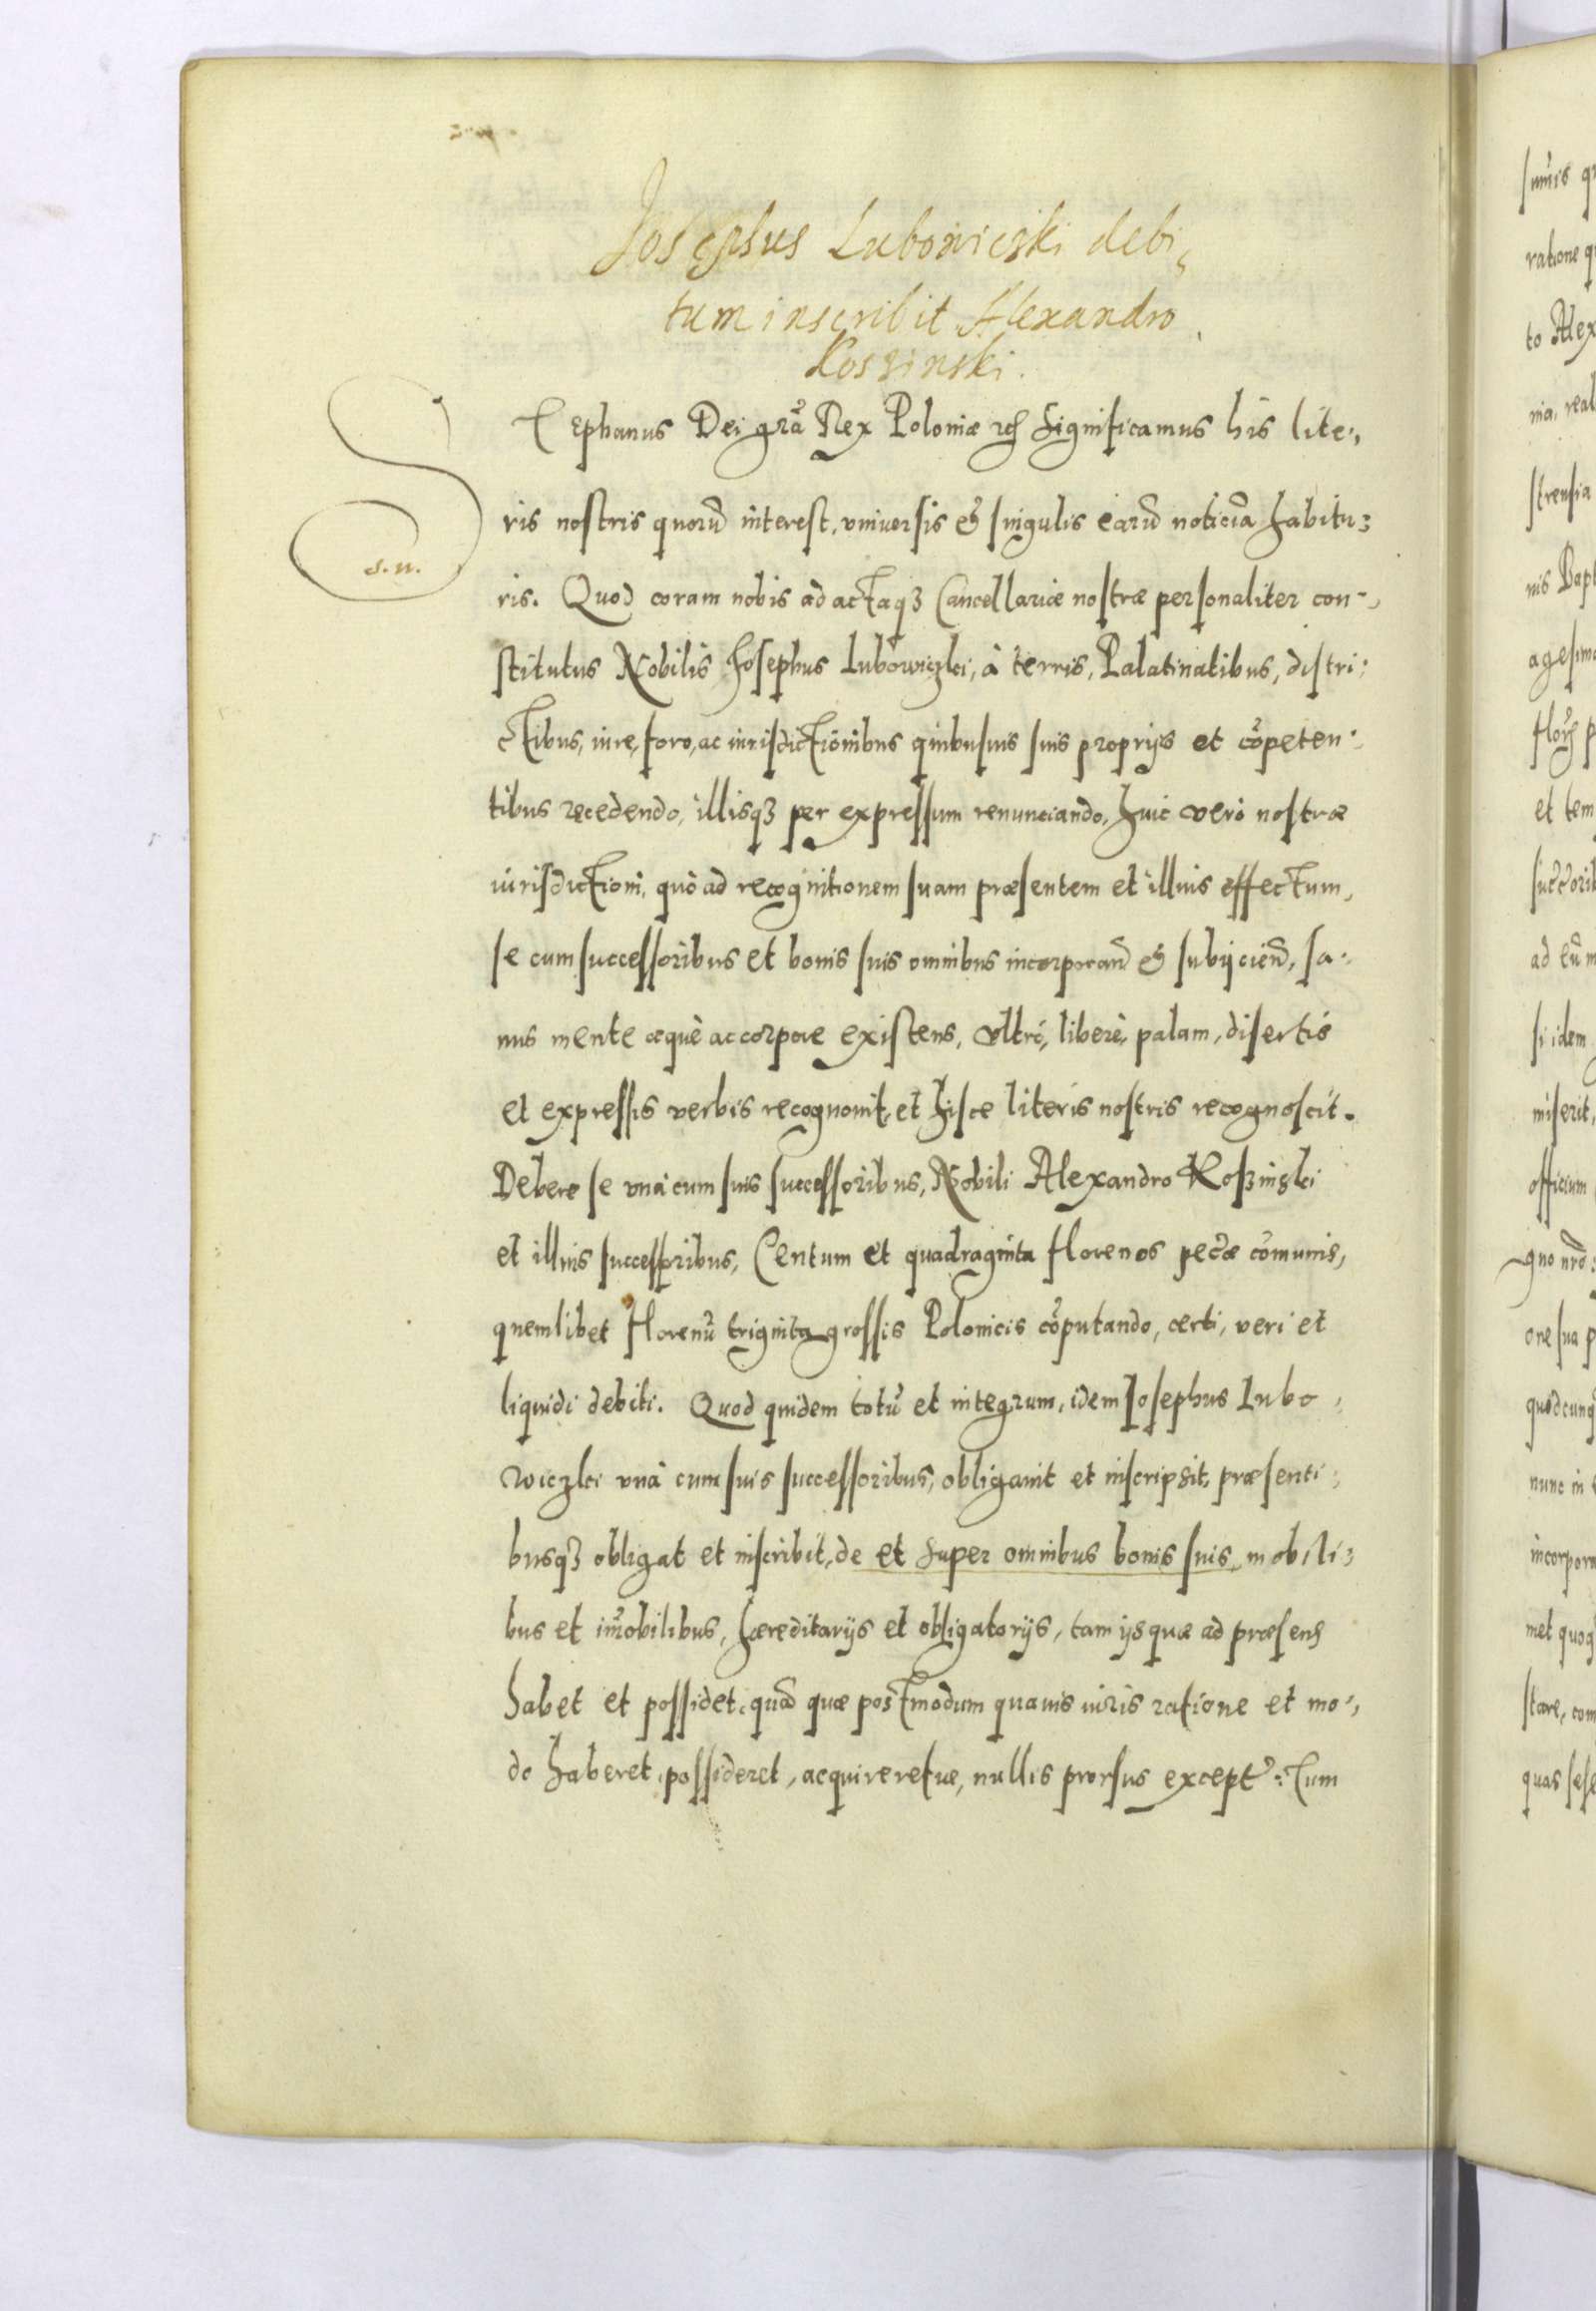 Josephus Lubowieski debi,
tum inscribit Alexandro
Koszinski.
S Tephanus Dei grã Rex Poloniæ etc Significamus his lite,
s.n.
ris nostris quorũ interest, vniuersis et singulis earũ noticiã habitu:
ris. Quod coram nobis ad actaqʒ Cancellariæ nostræ personaliter con-
stitutus Nobilis Josephus Lubowiczki, à terris, Palatinatibus, distri:
ctibus, iure, foro, ac iurisdictionibus quibusuis suis proprijs et cõpeten:
tibus recedendo, illisqʒ per expressum renunciando, huic verò nostræ
iurisdictioni, quò ad recognitionem suam præsentem et illius effectum,
se cum successoribus et bonis suis omnibus incorporand̃ et subijciend̃, sa-
nus mente æquè ac corpore existens, vltrò, liberè, palam, disertis
et expressis verbis recognouit, et hisce literis nostris recognoscit.
Debere se vnà cum suis successoribus, Nobili Alexandro Koszinski
et illius successoribus, Centum et quadraginta florenos pecæ cõmunis,
quemlibet florenũ triginta grossis Polonicis cõputando, certi, veri et
liquidi debiti. Quod quidem totũ et integrum, idem Josephus Lubo,
wiczki vnà cum suis successoribus, obligauit et inscripsit, præsenti:
busqʒ obligat et inscribit, de et super omnibus bonis suis, mobili:
bus et im̃obilibus, hæreditarijs et obligatorijs, tam ijs quæ ad præsens
habet et possidet, quã quæ postmodum quauis iuris ratione et mo,
do haberet, possideret, acquireretue, nullis prorsus except̃: Tum